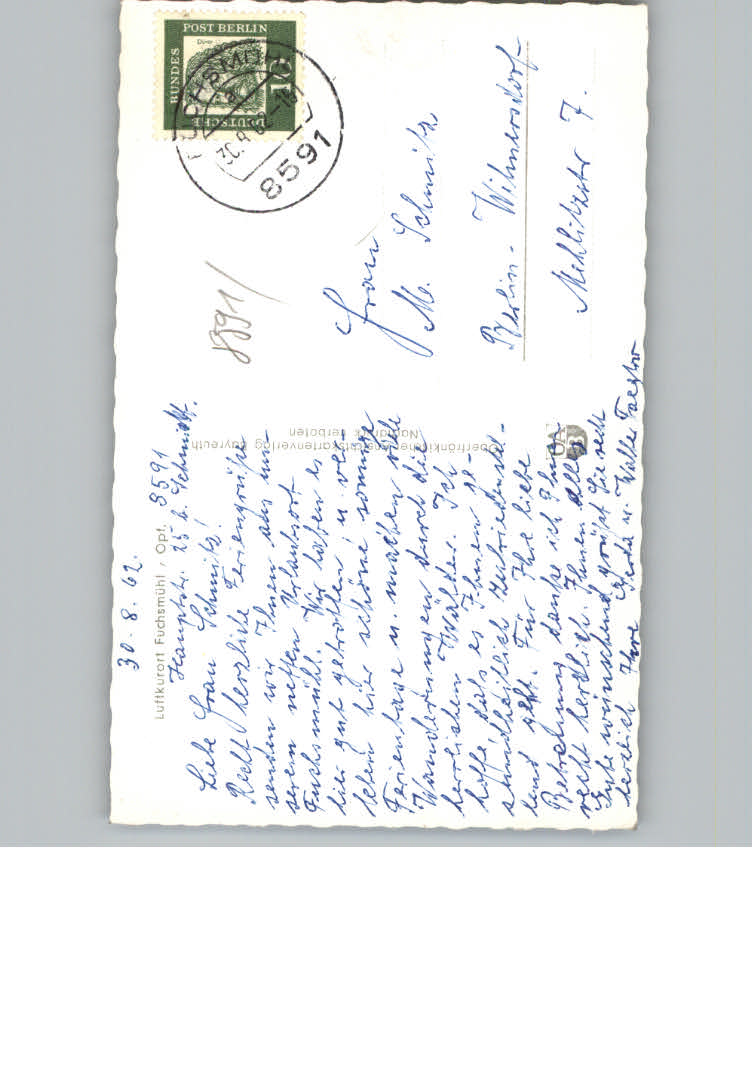 30.8.62.
Luftkurort Fuchsmühl, Opf. 8591
Hauptstr. 25 b. Schmidt.
Liebe Frau Schmitz!
Recht herzliche Feriengrüße
senden wir Ihnen aus un-
serem netten Urlaubsort
Fuchsmühl. Wir haben es
hier gut getroffen, u. ver-
leben hier schöne sonnige
Ferientage u. machen viele
Wanderungen durch die
herrlichen Wälder. Ich
hoffe daß es Ihnen ge-
sundheitlich zufriedenstel-
lend geht. Für Ihre liebe
Betreuung danke ich Ihnen
recht herzlich. Ihnen alles
Gute wünschend grüßt Sie recht
herzlich Ihre u. Walter
Oberfränkischer Ansichtskartenverlag Bayreuth
Nachdruck verboten
DEUTSCHE BUNDESPOST BERLIN
10
FUCHSMÜHL
30.8.62-16
8591
8591
Frau
M. Schmitz
Berlin-Wilmersdorf
7.